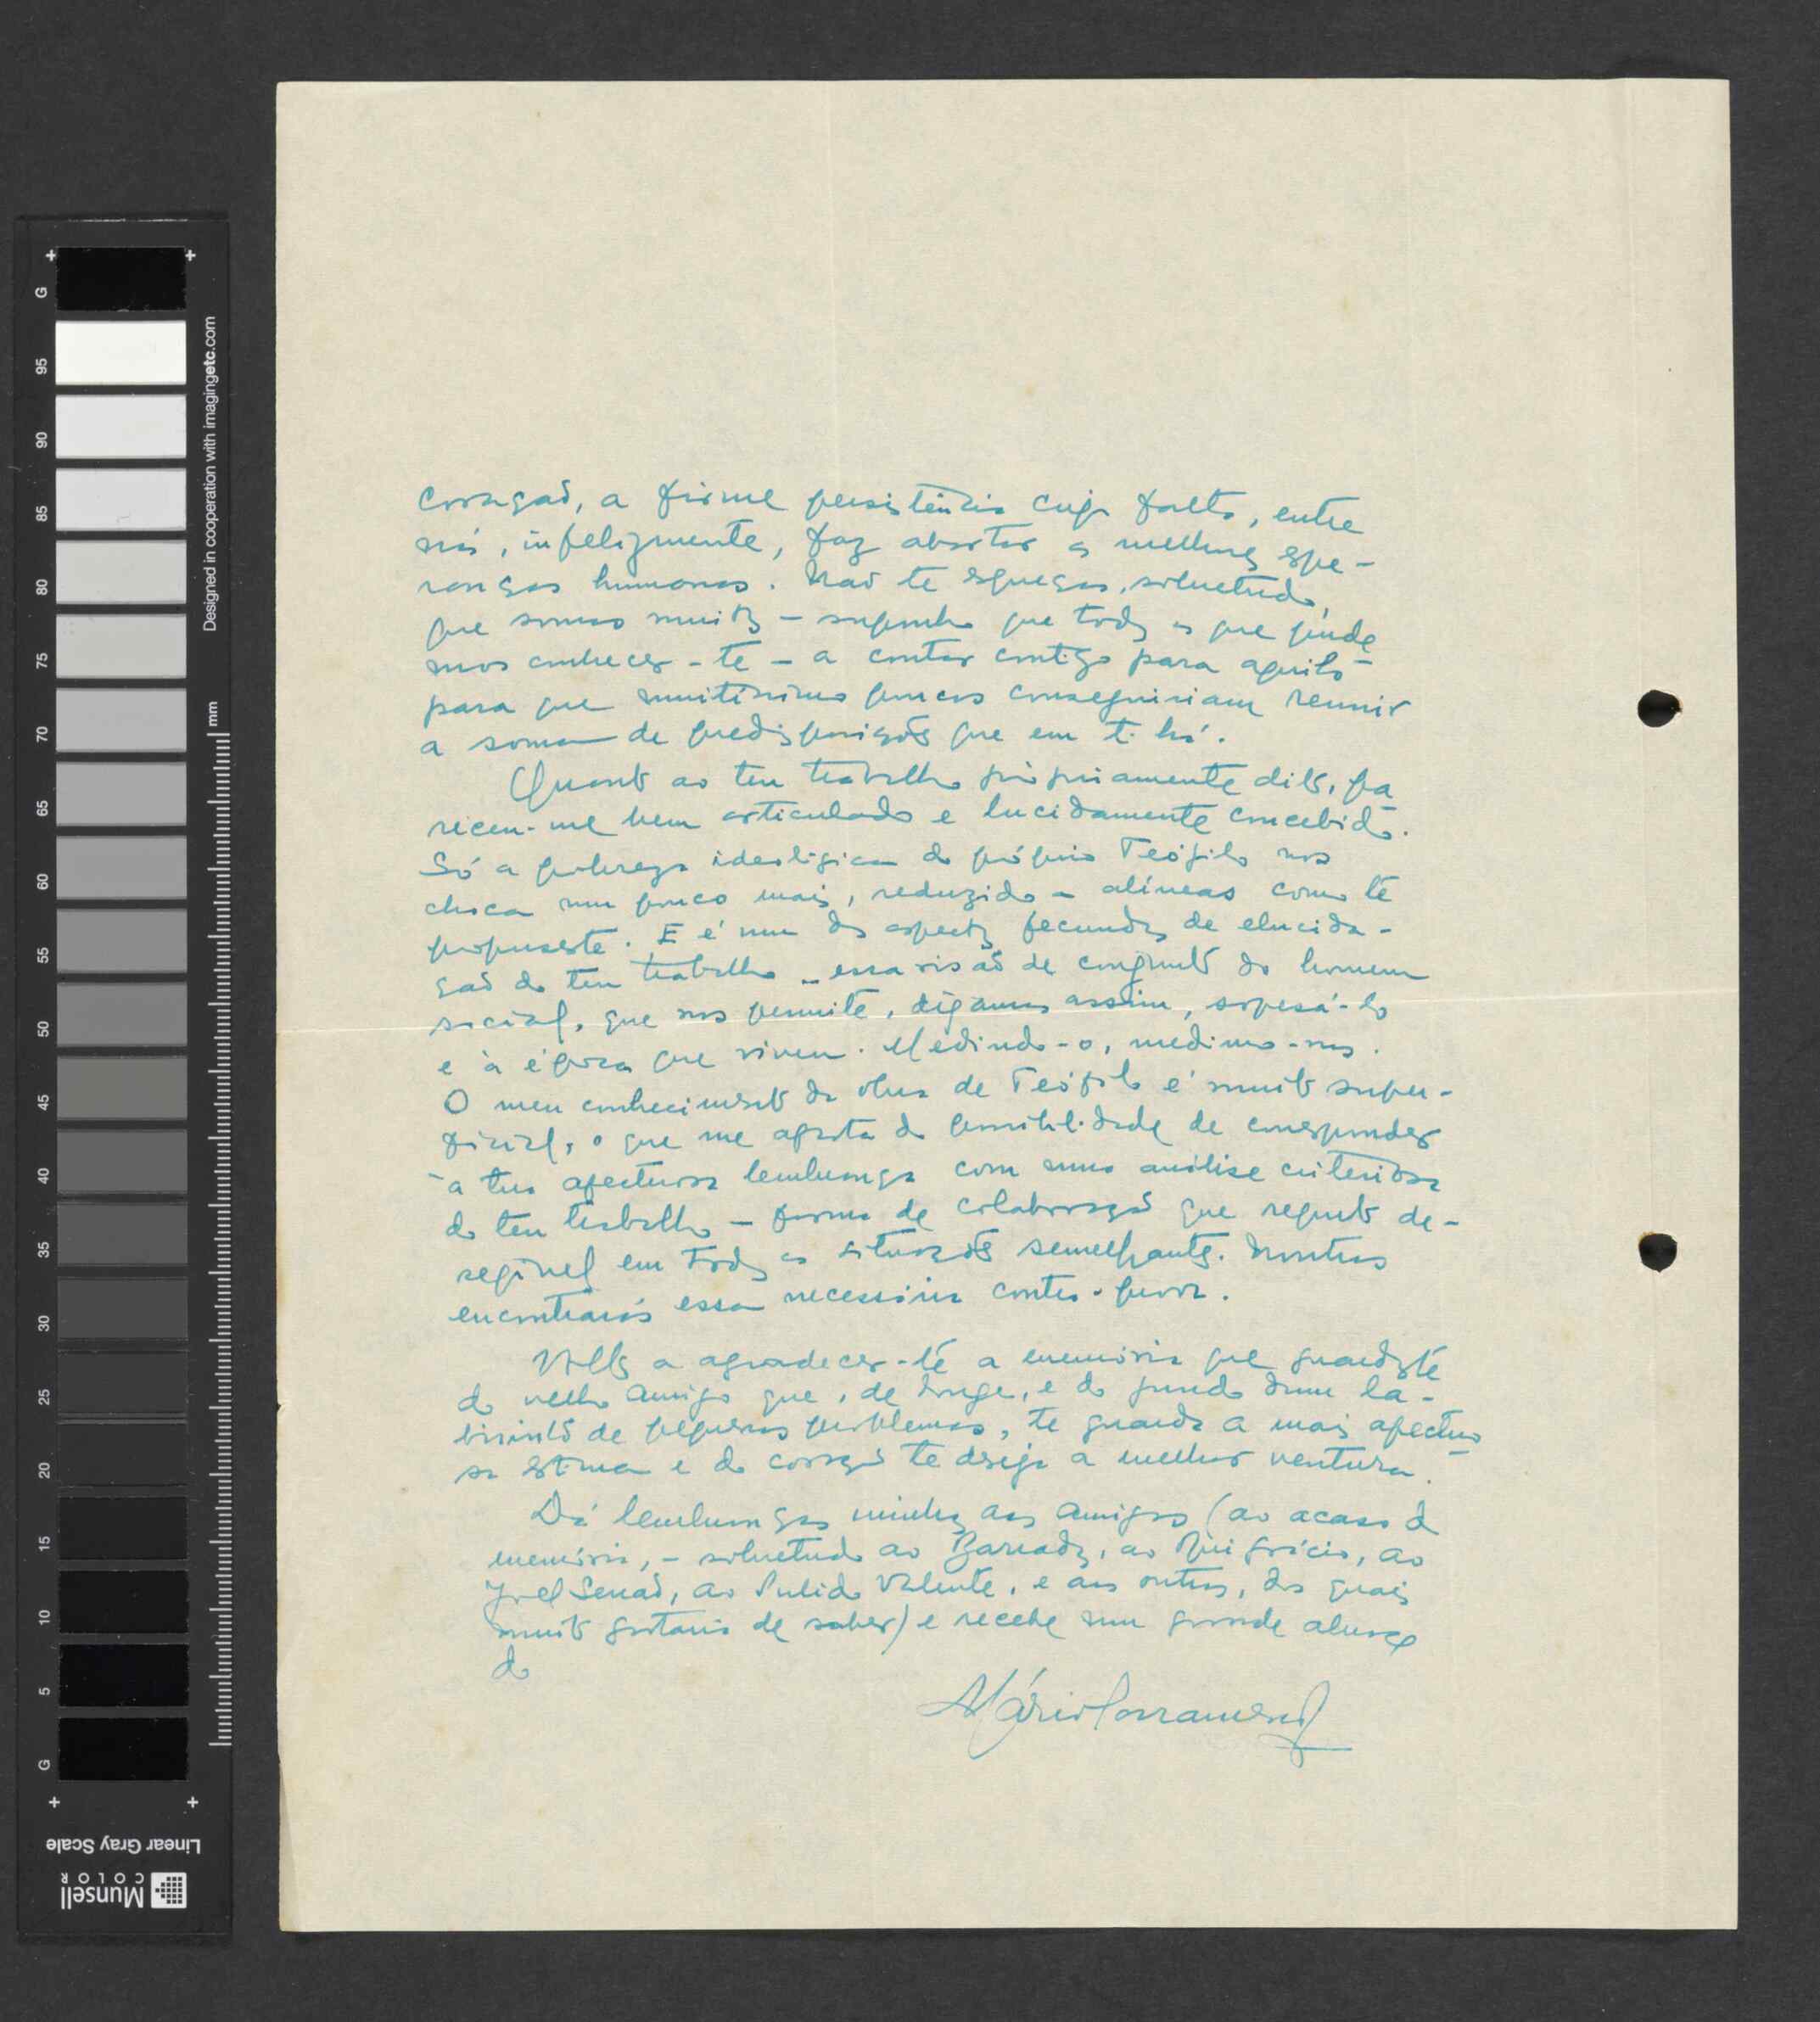 coração, a firme persistência cuja falta, entre
nós, infelizmente, faz abortar as melhores espe-
ranças humanas. Não te esqueças, sobretudo,
que somos muitos – suponho que todos os que pude
mos conhecer-te – a contar contigo para aquilo
para que muitíssimo poucos conseguiriam reunir
a soma de predisposições que em ti há.
Quanto ao teu trabalho pròpriamente dito, pa
receu-me bem articulado e lucidamente concebido.
Só a pobreza ideológica do próprio Teófilo nos
choca um pouco mais, reduzida a alíneas como te
propuseste. E é um dos aspectos fecundos de elucida-
ção do teu trabalho – essa visão de conjunto do homem
social, que nos permite, digamos assim, sopesá-lo
e à época que viveu. Medindo-o, medimo-nos.
O meu conhecimento da obra de Teófilo é muito super-
ficial, o que me afasta da possibilidade de corresponder
à tua afectuosa lembrança com uma análise criteriosa
do teu trabalho – forma de colaboração que reputo de-
sejável em todas as situações semelhantes. Noutros
encontrarás essa necessária contra-prova.
Volto a agradecer-te a memória que guardaste
do velho amigo que, de longe, e do fundo dum la-
birinto de pequenos problemas, te guarda a mais afectuo
sa estima e do coração te deseja a melhor ventura.
Dá lembranças minhas aos amigos (ao acaso da
memória, – sobretudo ao Barradas, ao Rui Grácio, ao
Joel Serrão, ao Pulido Valente, e aos outros, dos quais
muito gostaria de saber) e recebe um grande abraço
do
Mário Sacramento
Designed in cooperation with imagingetc.com
mm
G 95 90 85 80 75 70 65 60 55 50 45 40 35 30 25 20 15 10 5 G
Linear Gray Scale
Munsell
COLOR